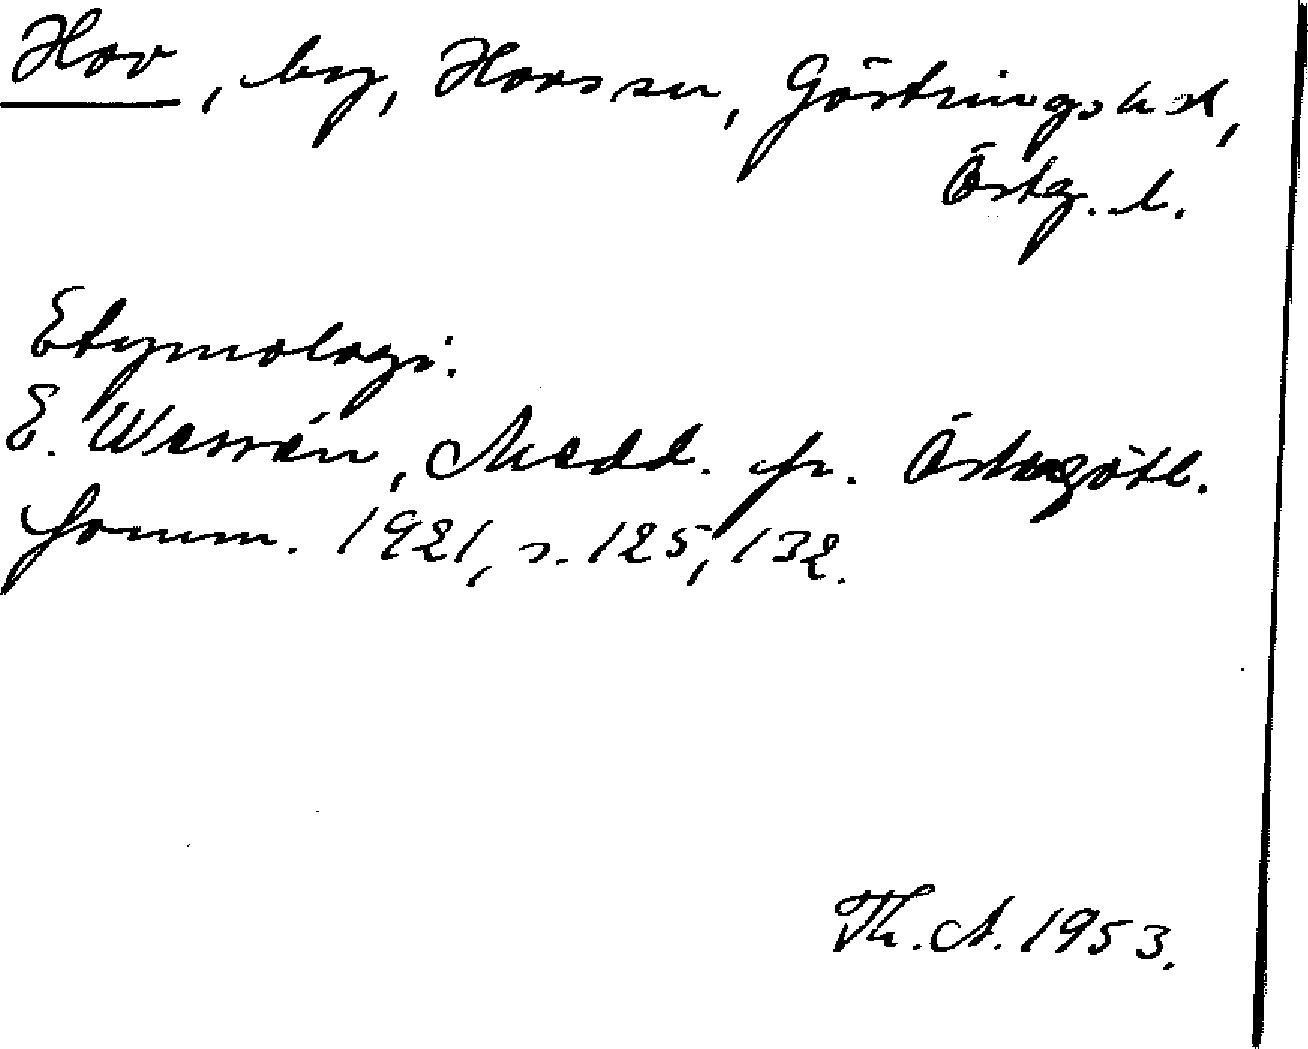 Hov, by, Hovs sn, Göstrings hd,
Östg. l.
Etymologi.
E. Wessén, Medd. fr. Östergötl.
fornm. 1921, s. 125, 132.
Th. A. 1953.